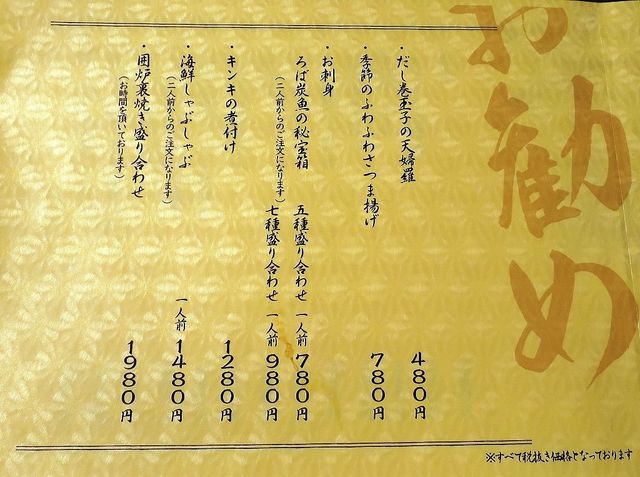 お勧め
・だし巻玉子の天婦羅 480円
・季節のふわふわさつま揚げ 780円
・お刺身
ろば炭魚の秘宝箱 五種盛り合わせ 一人前 780円
(二人前からのご注文になります) 七種盛り合わせ 一人前 980円
・キンキの煮付け 1280円
・海鮮しゃぶしゃぶ 一人前 1480円
(二人前からのご注文になります)
・囲炉裏焼き盛り合わせ 1980円
(お時間を頂いております)
※すべて税抜き価格となっております